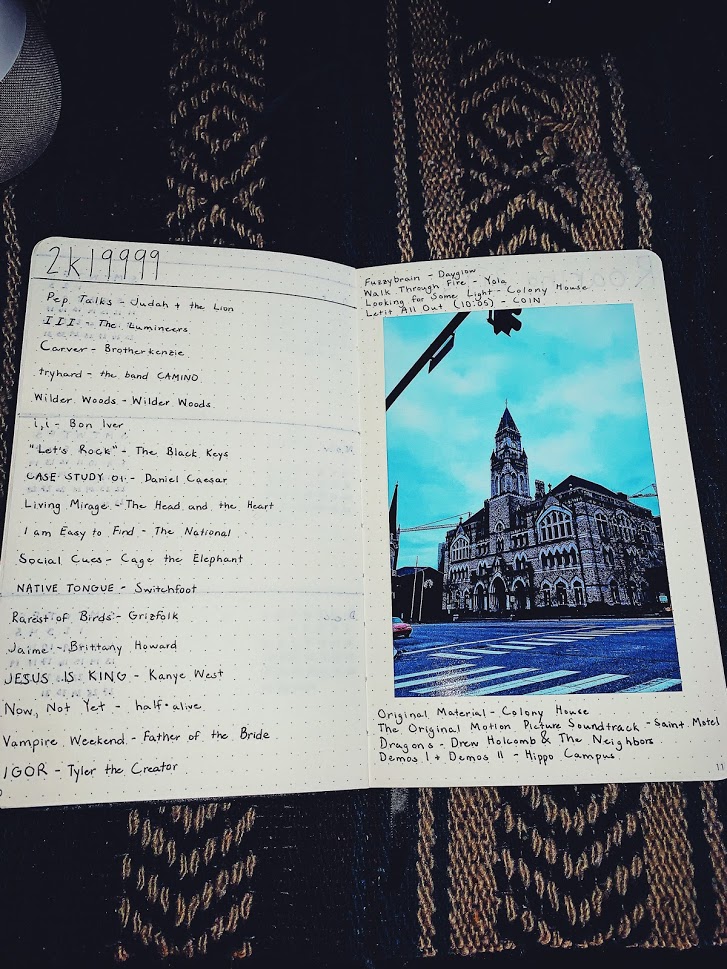 2k19999
Pep Talks - Judah + the Lion
III - The Lumineers
Carver - Brotherkenzie
tryhard - the band CAMINO
Wilder Woods - Wilder Woods
i,i - Bon Iver
"Let's Rock" - The Black Keys
CASE STUDY 01 - Daniel Caesar
Living Mirage - The Head and the Heart
I am Easy to Find - The National
Social Cues - Cage the Elephant
NATIVE TONGUE - Switchfoot
Rarest of Birds - Grizfolk
Jaime - Brittany Howard
JESUS IS KING - Kanye West
Now, Not Yet - half•alive
Vampire Weekend - Father of the Bride
IGOR - Tyler the Creator
Fuzzybrain - Dayglow
Walk Through Fire - Yola
Looking for Some Light - Colony House
Let it All Out (10:05) - COIN
Original Material - Colony House
The Original Motion Picture Soundtrack - Saint Motel
Dragons - Drew Holcomb & The Neighbors
Demos I + Demos II - Hippo Campus
11